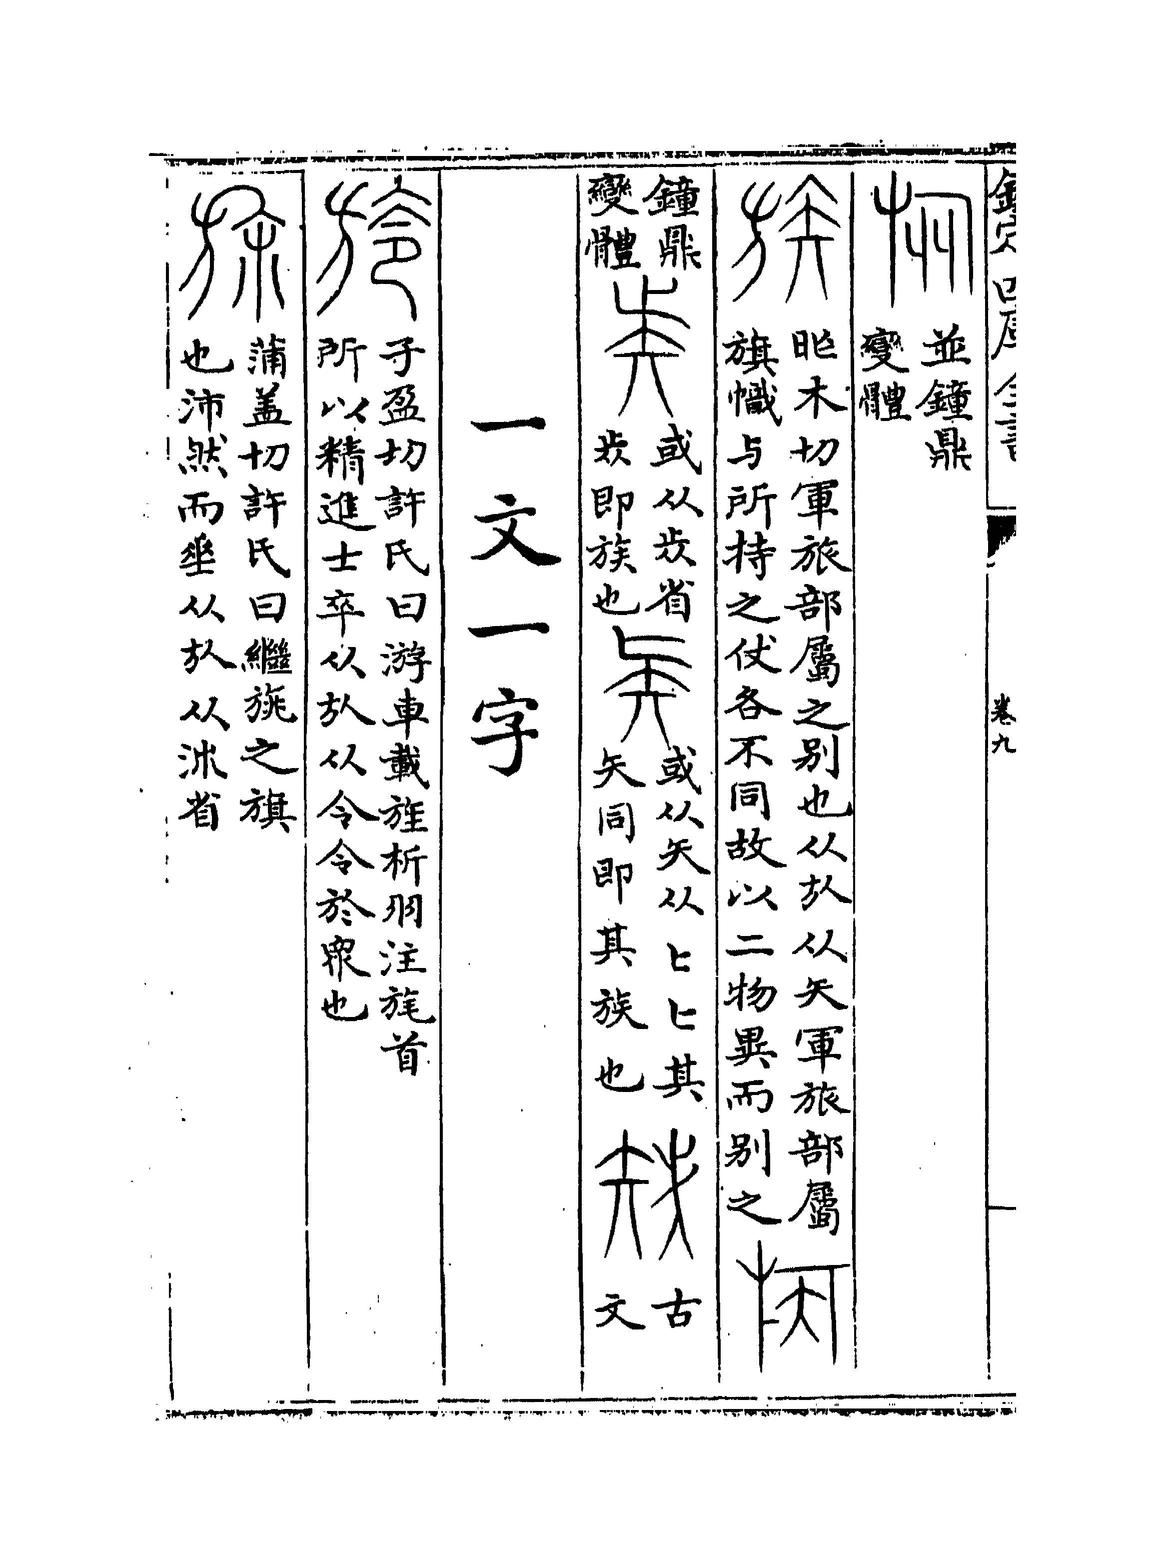 欽定四庫全書
卷九
並鐘鼎
變體
昨木切軍旅部屬之别也从㫃从矢軍旅部屬
旗幟与所持之仗各不同故以二物異而别之
鐘鼎
變體
或从省
即族也
或从矢从匕匕其
矢同即其族也
古
文
一文一字
子盈切許氏曰游車載旌析羽注旄首
所以精進士卒从㫃从令令於衆也
蒲盖切許氏曰繼旐之旗
也沛然而垂从㫃从沭省